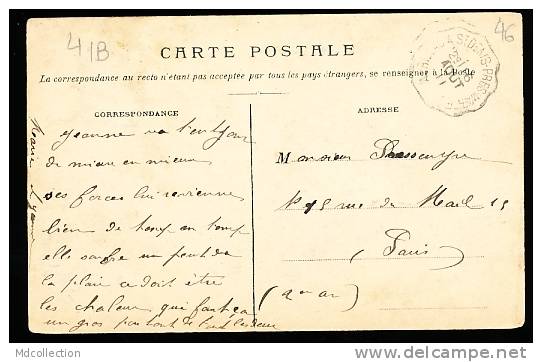 41B
46
CARTE POSTALE
La correspondance au recto n'étant pas acceptée par tous les pays étrangers, se renseigner à la Poste
CORRESPONDANCE
ADRESSE
A St DENIS-PRES-
AOUT
Jeanne va
de mieux en mieux
ses forces lui reviennent
bien de temps en temps
elle soufre un peu de
la plaie ce doit être
les chaleurs qui font ça
un gros
Marie
Monsieur
rue du Mail 15
Paris
(2e ar)
Mdcollection
www.delcampe.net